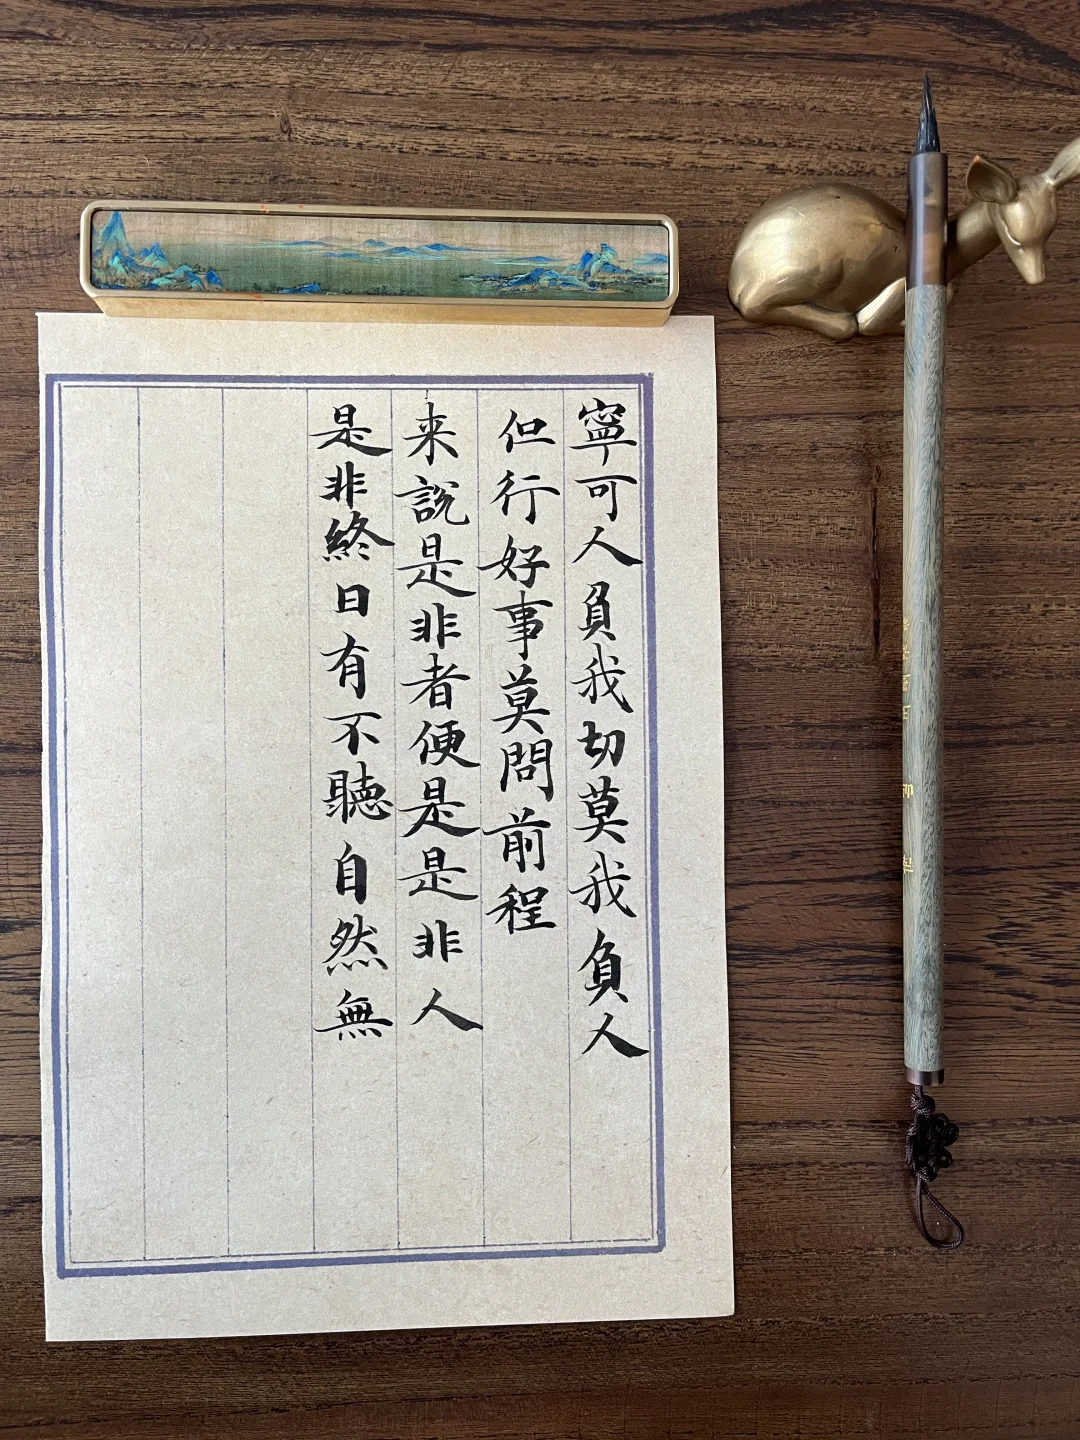 寧可人負我切莫我負人
但行好事莫問前程
来說是非者便是是非人
是非終日有不聽自然無